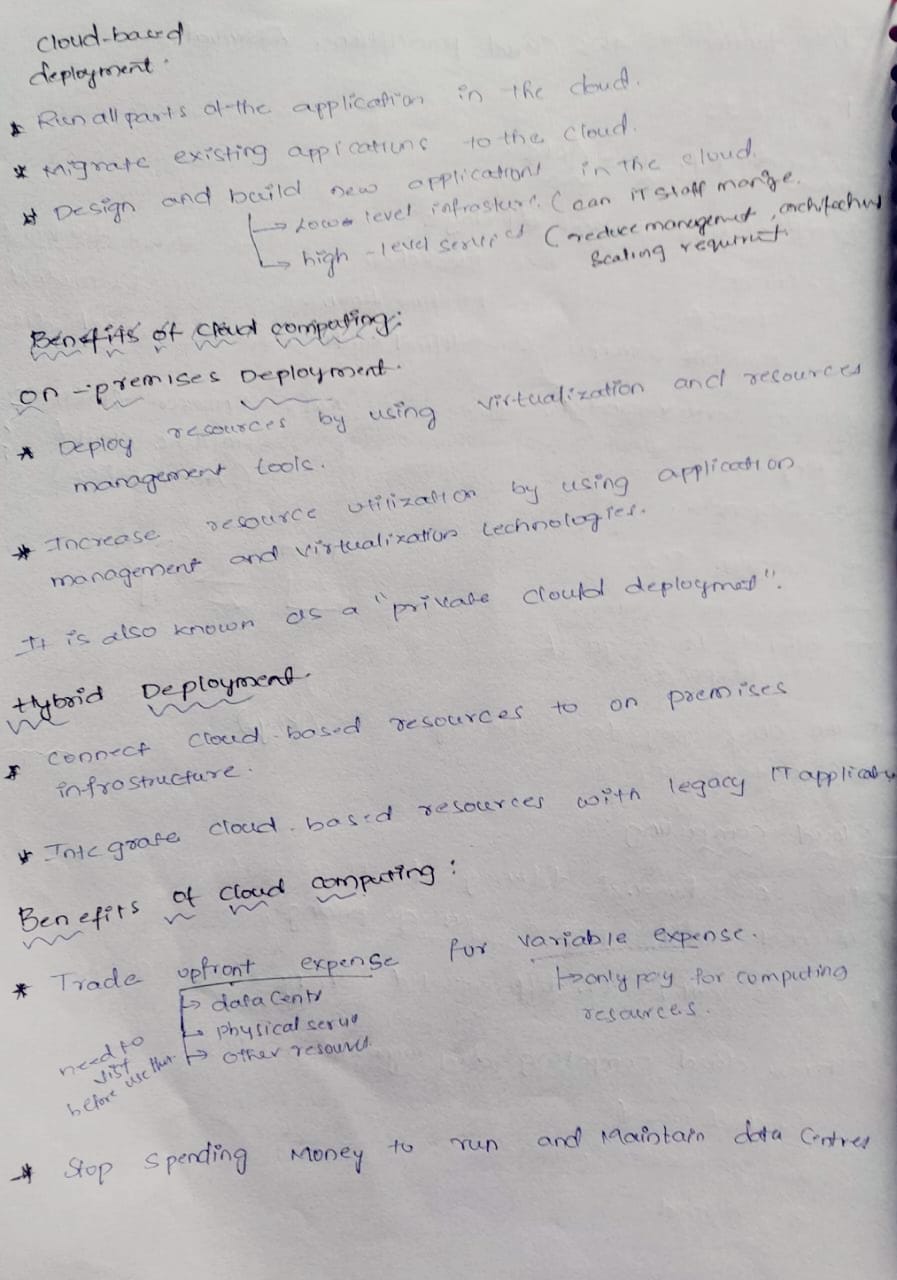 cloud-based
deployment.
* Run all parts of the application in the cloud.
* Migrate existing applications to the cloud.
* Design and build new applications in the cloud.
→ Lower level infrasture. (can IT staff mange.
→ high-level services (reduce management, architectural
Scaling requirmnt
Benefits of cloud computing:
on-premises Deployment.
* Deploy resources by using virtualization and resources
management tools.
* Increase resource utilization by using application
management and virtualization technologies.
It is also known as a "private cloud deployment".
Hybrid Deployment.
* connect cloud-based resources to on premises
infrastructure.
* Integrate cloud-based resources with legacy IT
Benefits of cloud computing:
* Trade upfront expense for variable expense.
→ data Centr
→ only pay for computing
resources.
→ physical server
→ other resources
need to
before use
* Stop spending Money to run and Maintain data Centres